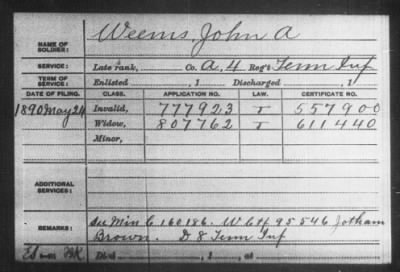 Weems, John A
NAME OF SOLDIER:
SERVICE: Late rank, Co. A, 4 Reg't Tenn Inf
TERM OF SERVICE: Enlisted , 1 Discharged , 1
DATE OF FILING. CLASS. APPLICATION NO. LAW. CERTIFICATE NO.
1890 May 24 Invalid, 777923 557900
Widow, 807762 611440
Minor,
ADDITIONAL SERVICES:
REMARKS: See Min C 160186. W Ctf 95546 Jotham
Brown. D 8 Tenn Inf
Died , 1 , at